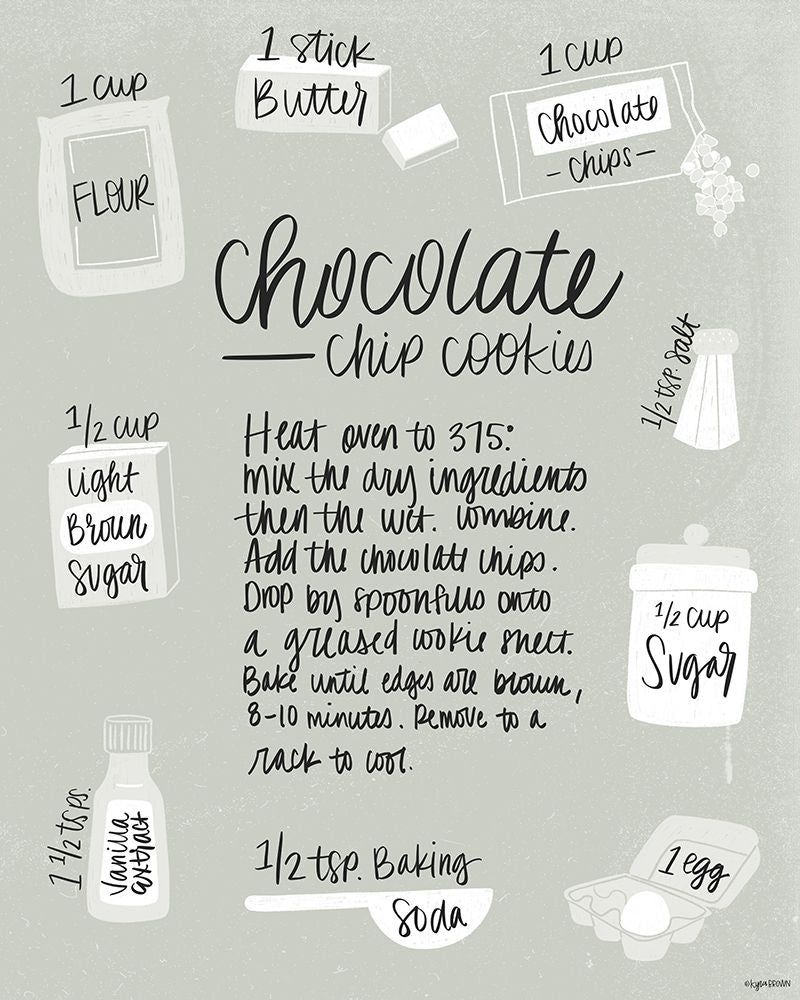 1 cup
FLOUR
1 stick
Butter
1 cup
Chocolate
- chips -
Chocolate
— chip cookies
1/2 tsp. salt
1/2 cup
light
Brown
Sugar
Heat oven to 375°
mix the dry ingredients
then the wet. combine.
Add the chocolate chips.
Drop by spoonfulls onto
a greased cookie sheet.
Bake until edges are brown,
8-10 minutes. Remove to a
rack to cool.
1/2 cup
Sugar
1 1/2 tsps.
Vanilla
extract
1/2 tsp. Baking
Soda
1 egg
©kyra BROWN